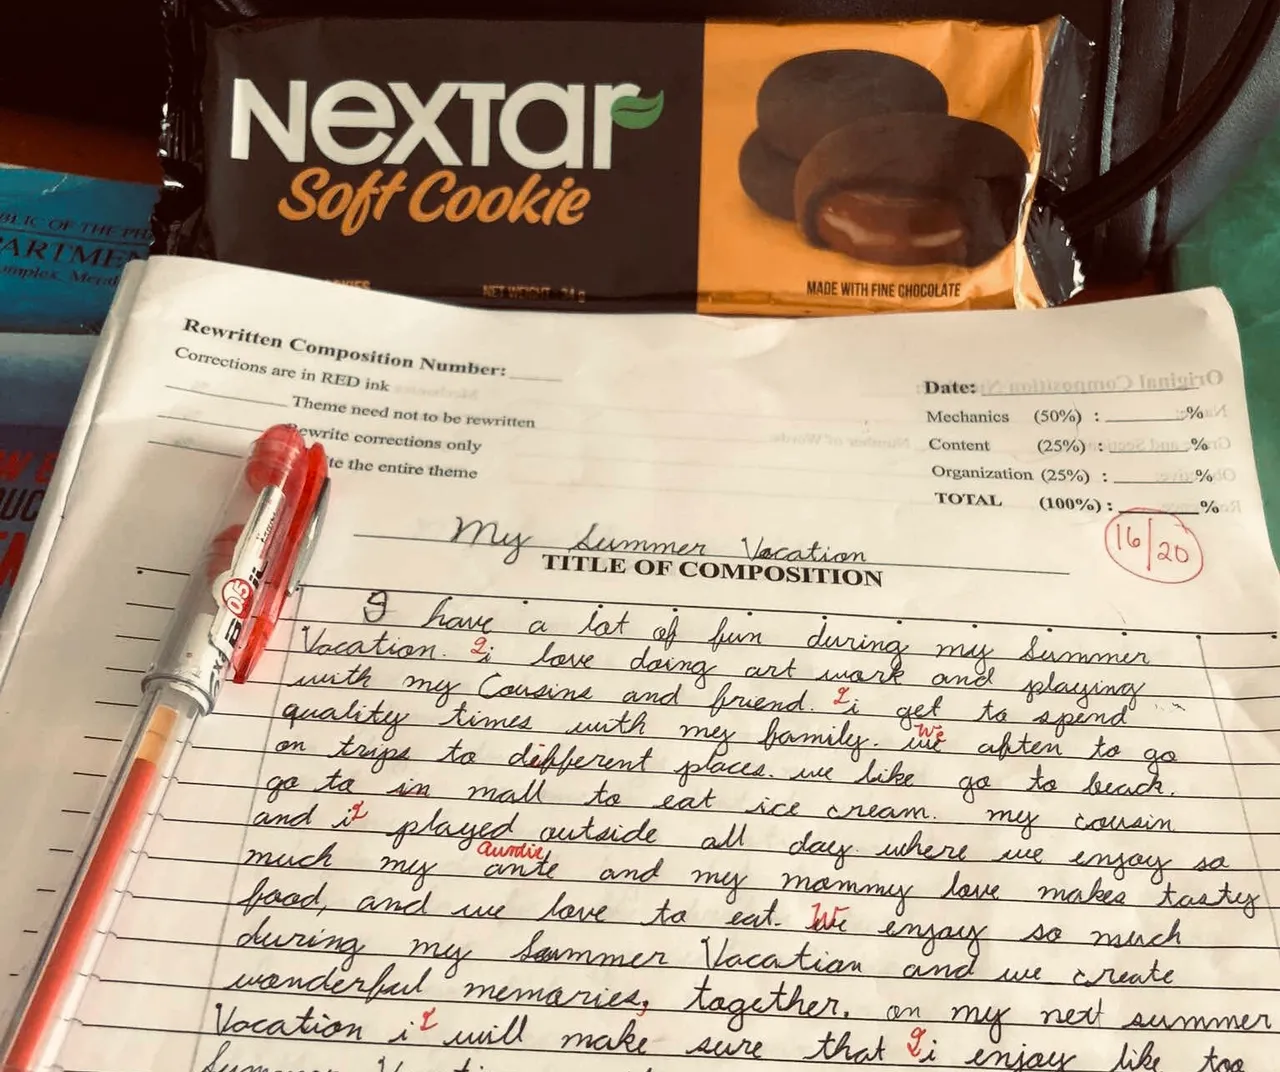 Nextar
Soft Cookie
NET WEIGHT : 34 g
MADE WITH FINE CHOCOLATE
BLIC OF THE PH
ARTMEN
omplex, Mer
Rewritten Composition Number:
Corrections are in RED ink
Theme need not to be rewritten
Rewrite corrections only
te the entire theme
Date:
Mechanics (50%) : %
Content (25%) : %
Organization (25%) : %
TOTAL (100%) : %
16/20
My Summer Vacation
TITLE OF COMPOSITION
0.5
I have a lot of fun during my Summer
Vacation. I i love doing art work and playing
with my Cousins and friend. I i get to spend
quality times with my family. we We often to go
on trips to different places. we like go to beach.
go to in mall to eat ice cream. my cousin
and i I played outside all day. where we enjoy so
much my ante Auntie and my mommy love makes tasty
food, and we love to eat. We enjoy so much
during my Summer Vacation and we create
wonderful memories, together. on my next summer
Vacation i I will make sure that I i enjoy like too
Summer Vacation